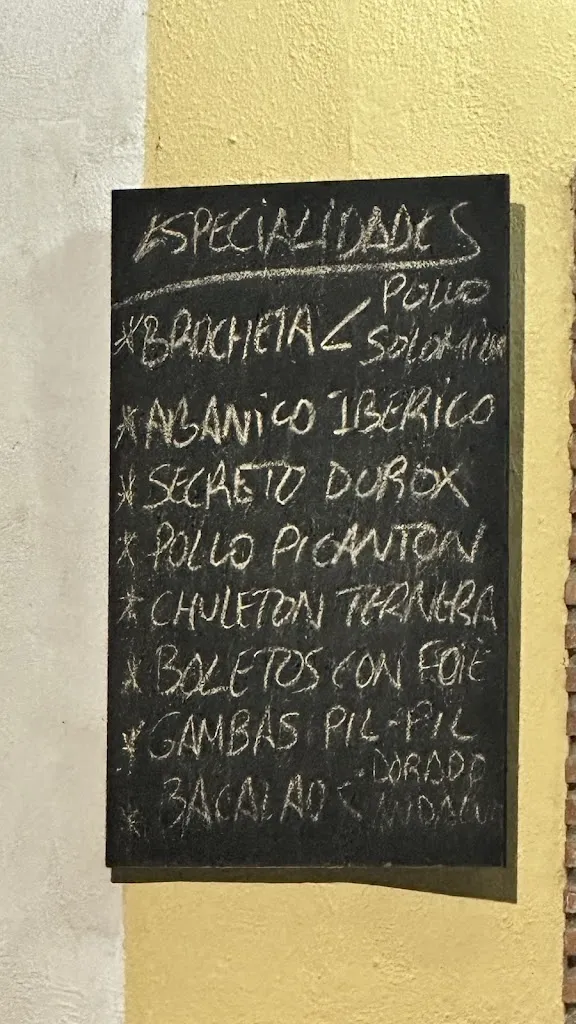 ESPECIALIDADES
* BROCHETA < POLLO
SOLOMILLO
* ABANICO IBERICO
* SECRETO DUROX
* POLLO PICANTON
* CHULETON TERNERA
* BOLETOS CON FOIE
* GAMBAS PIL-PIL
* BACALAO < DORADO